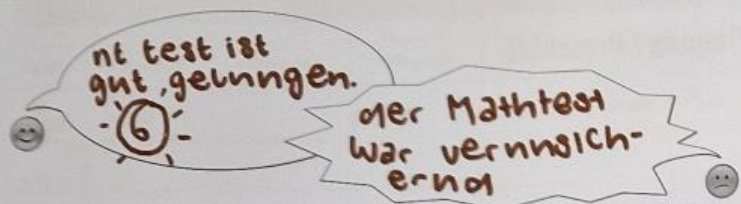 nt test ist
gut, gelungen.
6
der Mathtest
war verunsich-
ernd